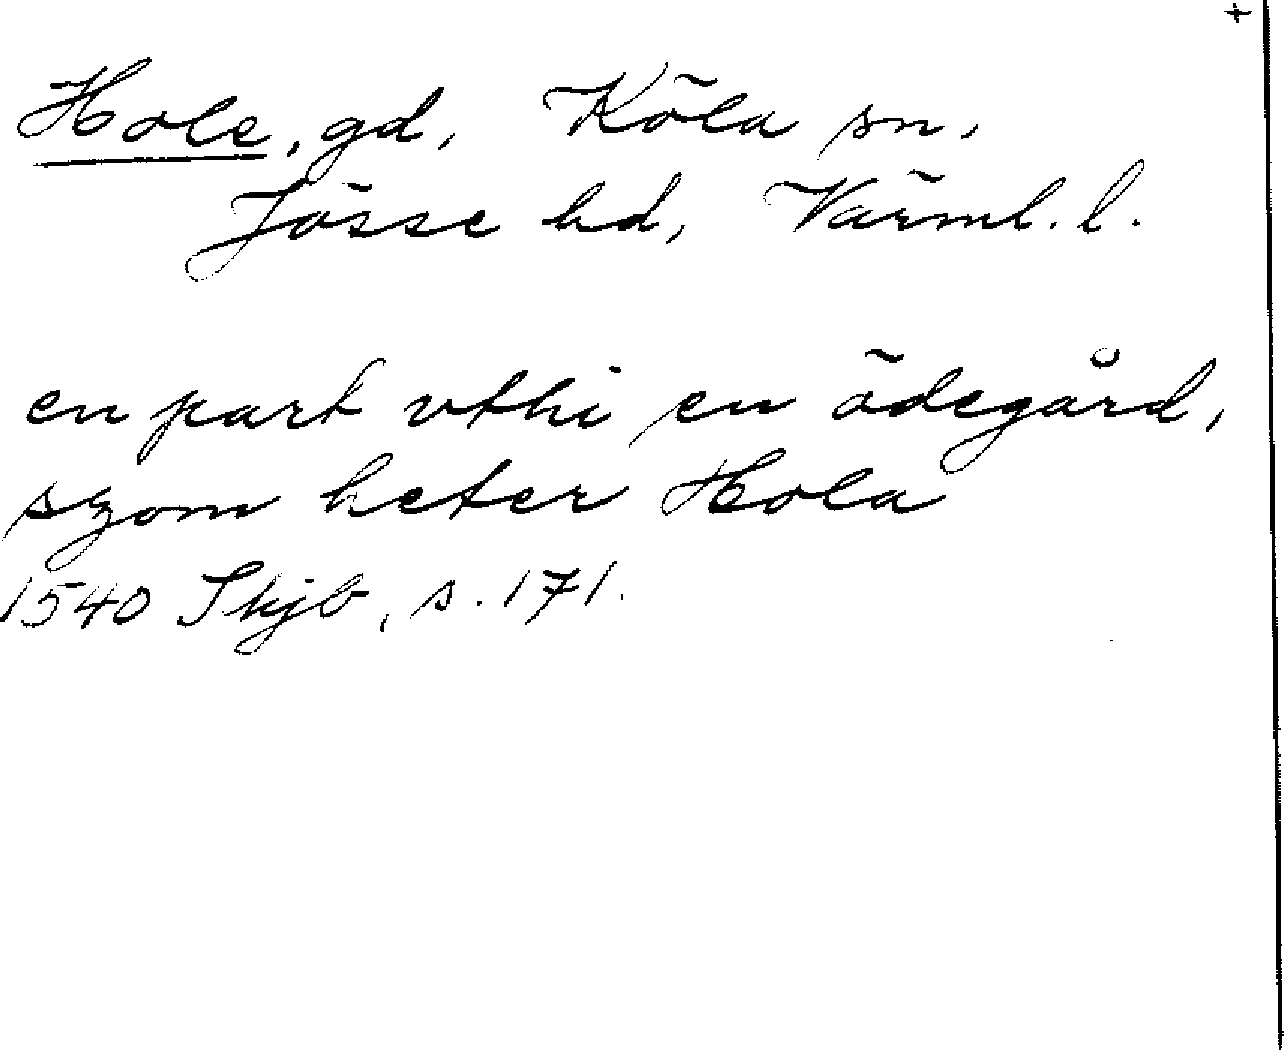 +
Hole, gd, Köla sn,
Jösse hd, Värml. l.
en part vthi en ödegård,
szom heter Hola
1540 Skjb, s. 171.